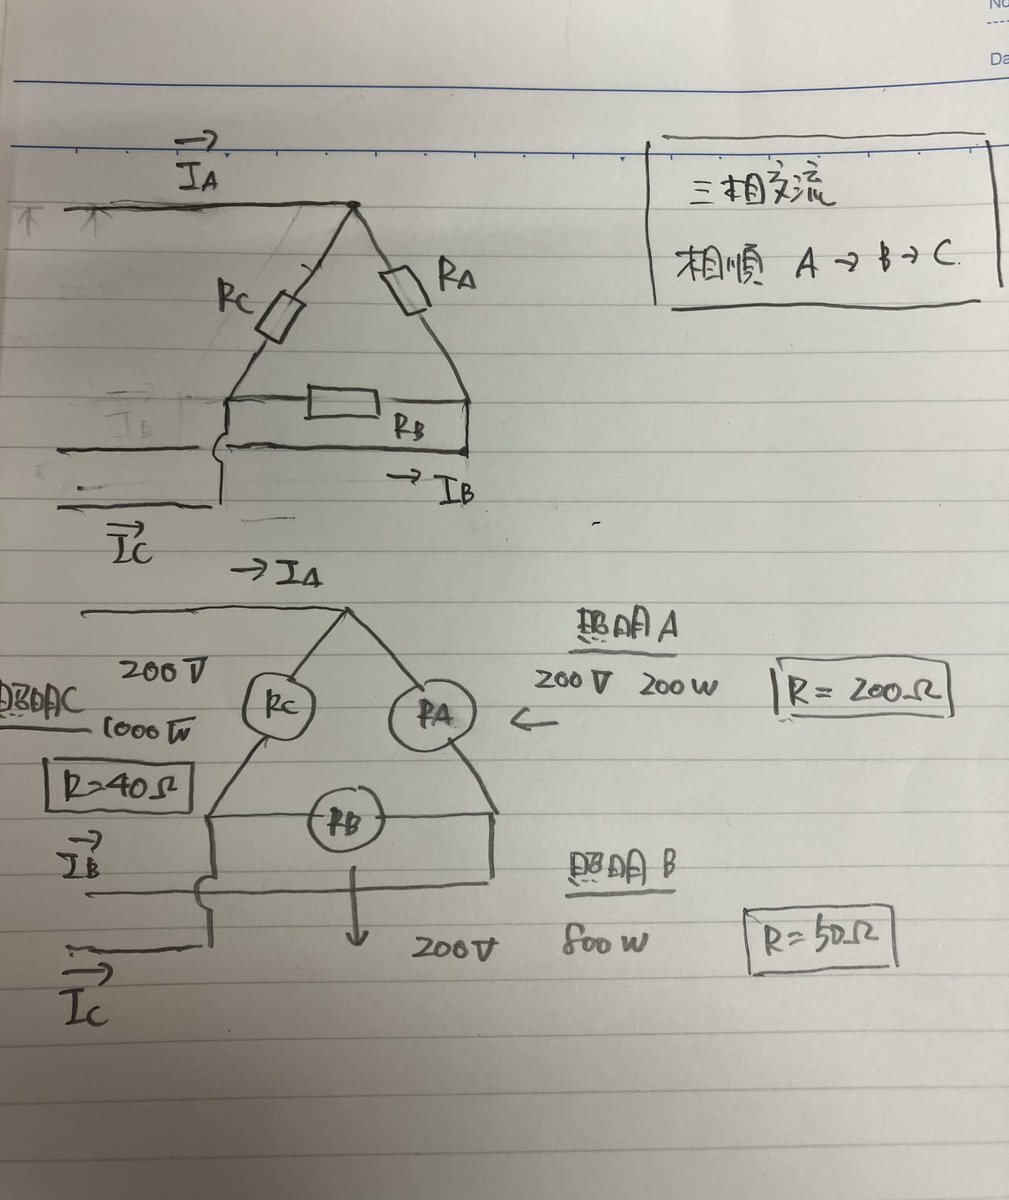 No
Da
三相交流
相順 A → B → C.
→
IA
RC
RA
RB
→ IB
→
IC
→ IA
照明 A
200V 200W
R = 200Ω
200V
照明C
1000W
R=40Ω
RC
RA
RB
→
IB
照明 B
200V 800W
R=50Ω
→
IC